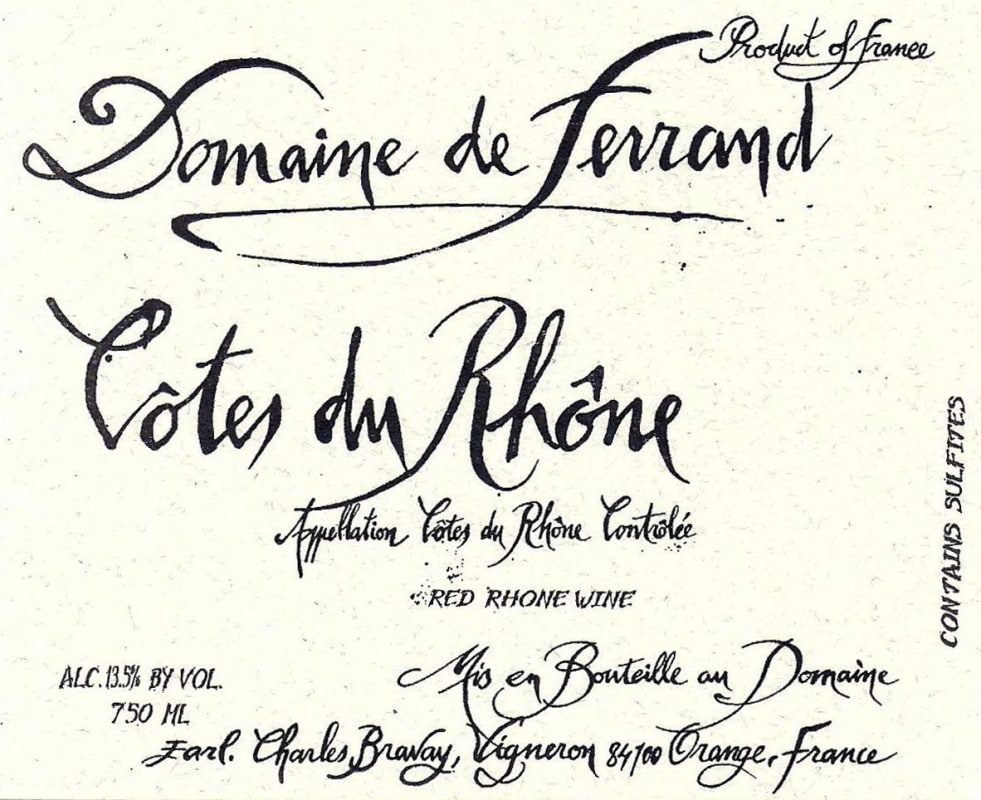 Product of France
Domaine de Ferrand
Côtes du Rhône
Appellation Côtes du Rhône Contrôlée
RED RHONE WINE
CONTAINS SULFITES
ALC. 13.5% BY VOL.
750 ML
Mis en Bouteille au Domaine
Earl. Charles Bravay, Vigneron 84100 Orange, France